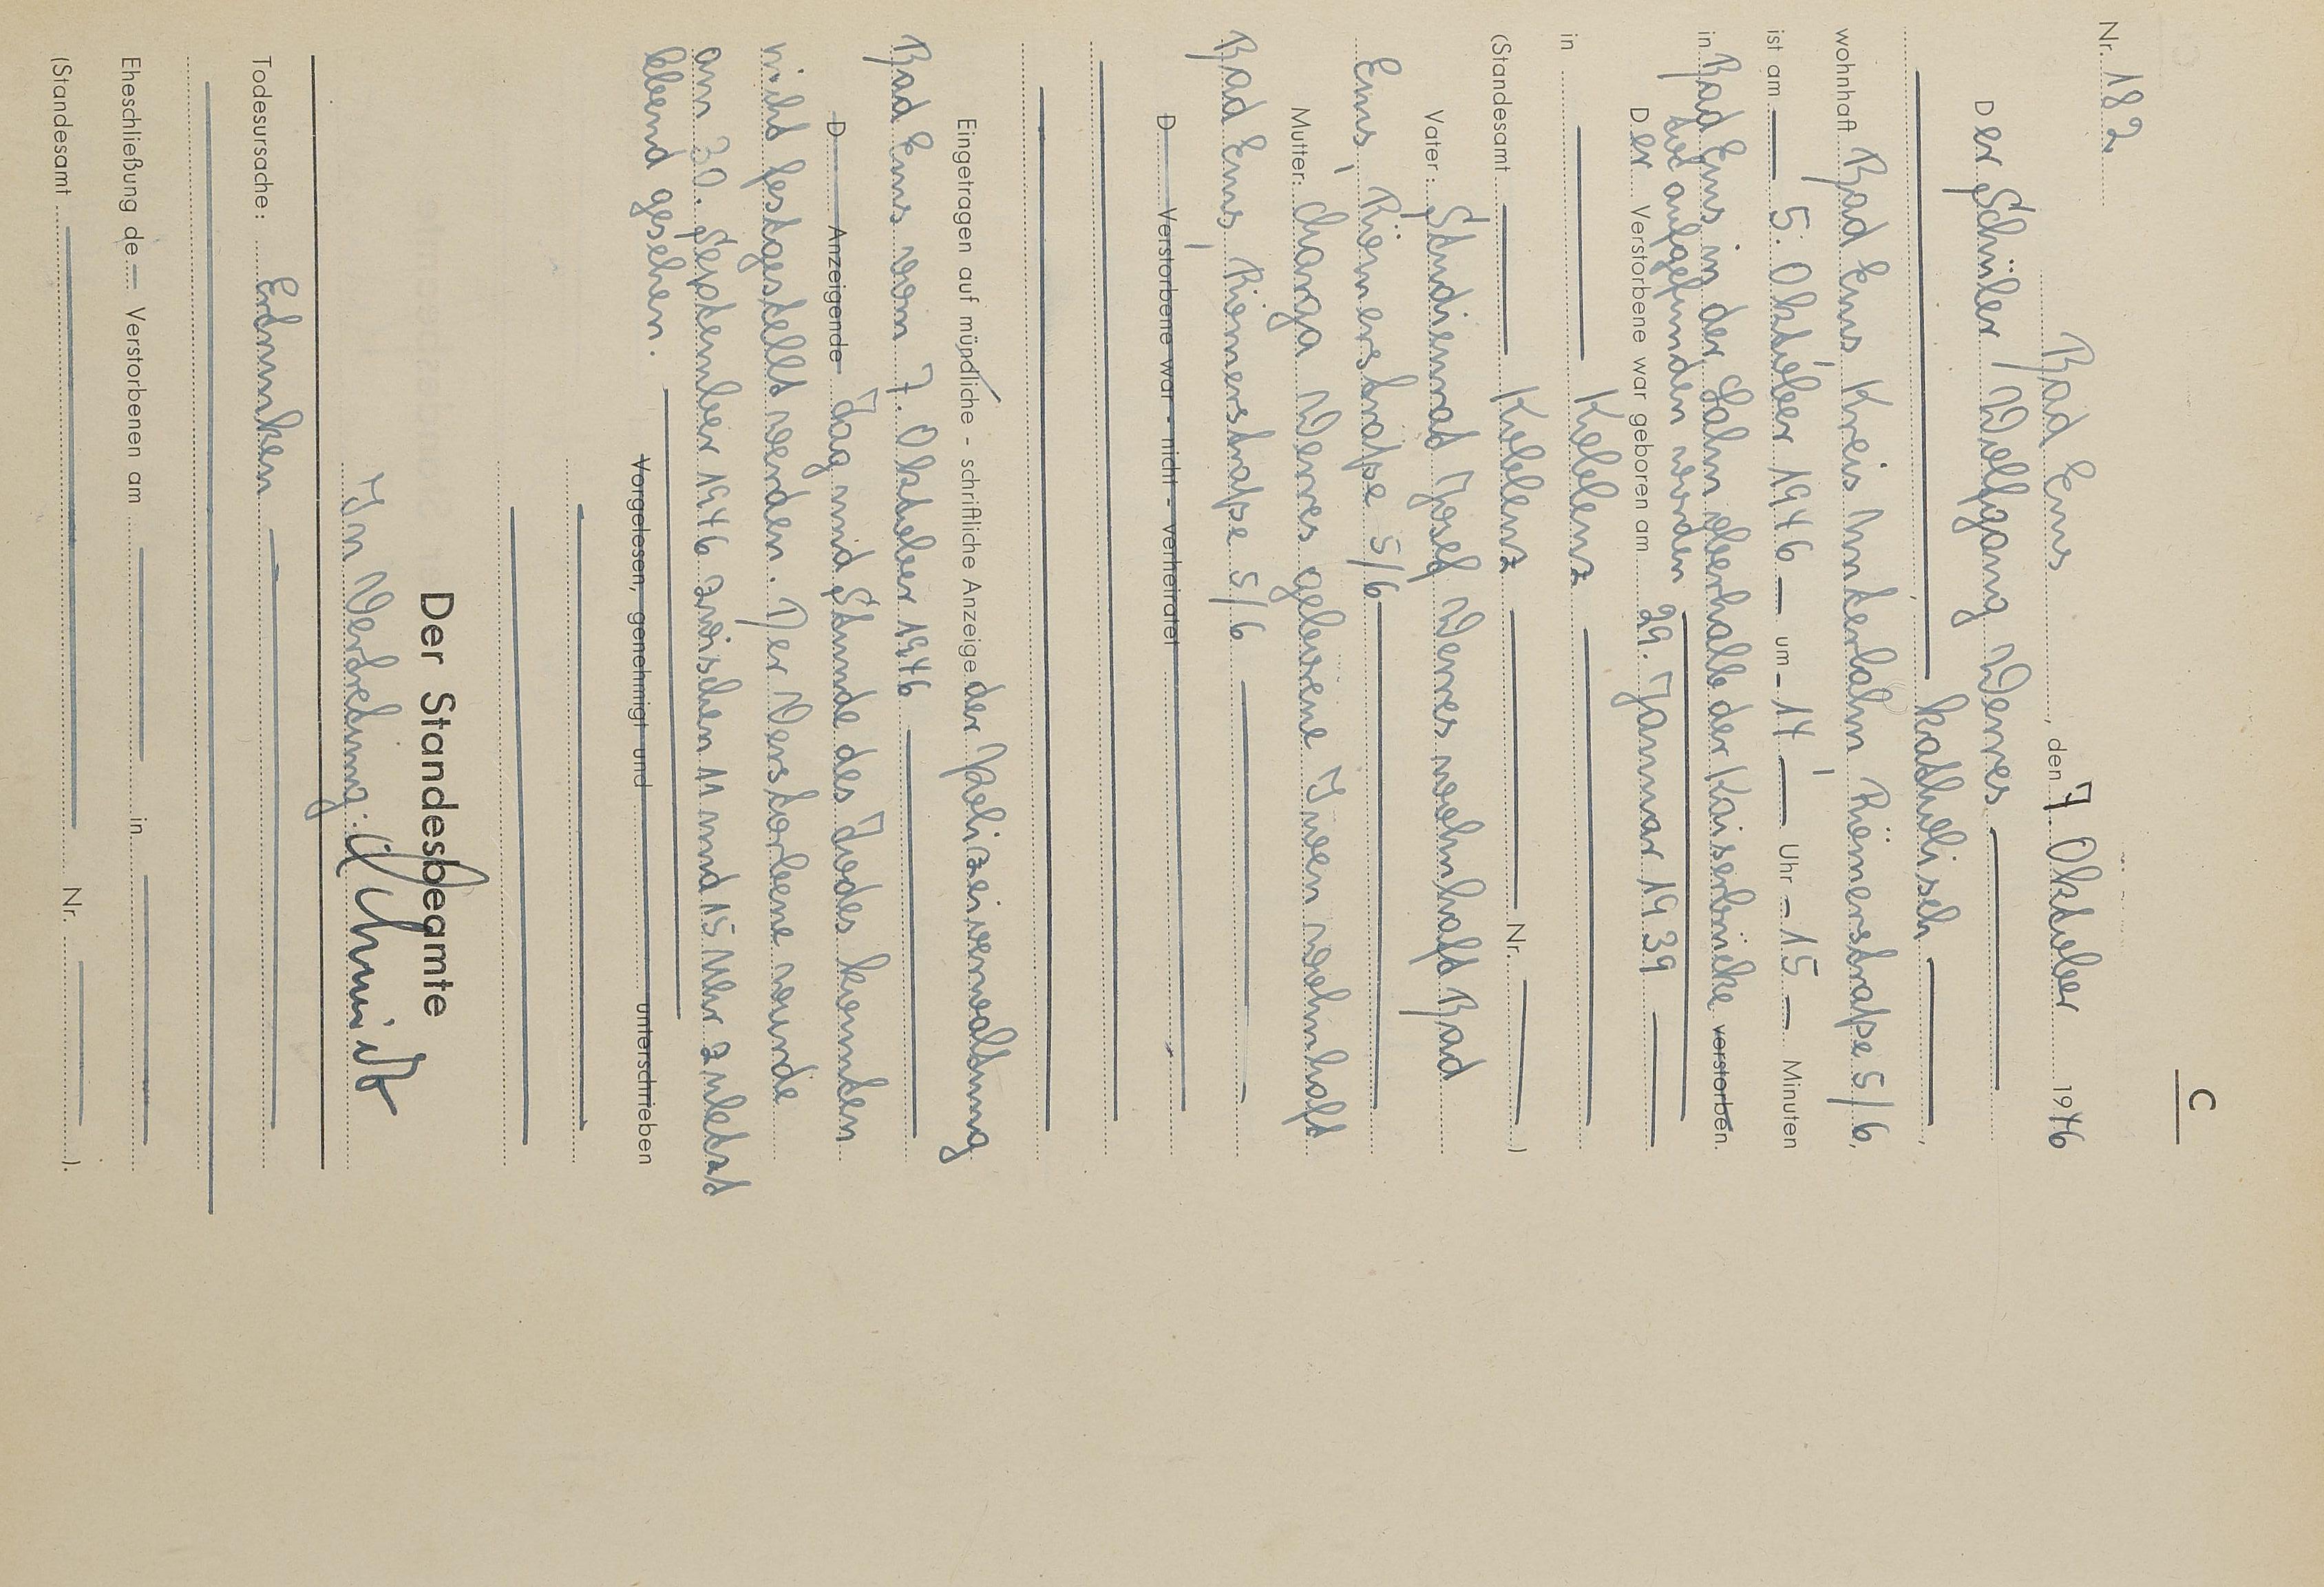 C
Nr. 182
Bad Ems, den 7. Oktober 1946
Der Schüler Wolfgang Wenes
katholisch,
wohnhaft Bad Ems Kreis Unterlahn Römerstraße 5/6,
ist am 5. Oktober 1946 um 14 Uhr 15 Minuten
in Bad Ems in der Lahn oberhalb der Kaiserbrücke verstorben.
tot aufgefunden worden
Der Verstorbene war geboren am 29. Januar 1939
in Koblenz
(Standesamt Koblenz Nr. )
Vater: Studienrat Josef Wenes wohnhaft Bad
Ems, Römerstraße 5/6
Mutter: Marga Wenes geborene Iven wohnhaft
Bad Ems, Römerstraße 5/6
D Verstorbene war - nicht - verheiratet
Eingetragen auf mündliche - schriftliche Anzeige der Polizeiverwaltung
Bad Ems vom 7. Oktober 1946
D Anzeigende Tag und Stunde des Todes konnten
nicht festgestellt werden. Der Verstorbene wurde
am 30. September 1946 zwischen 11 und 15 Uhr zuletzt
lebend gesehen.
Vorgelesen, genehmigt und unterschrieben
Der Standesbeamte
In Vertretung: Schmidt
Todesursache: Ertrunken
Eheschließung de Verstorbenen am in
(Standesamt Nr. ).